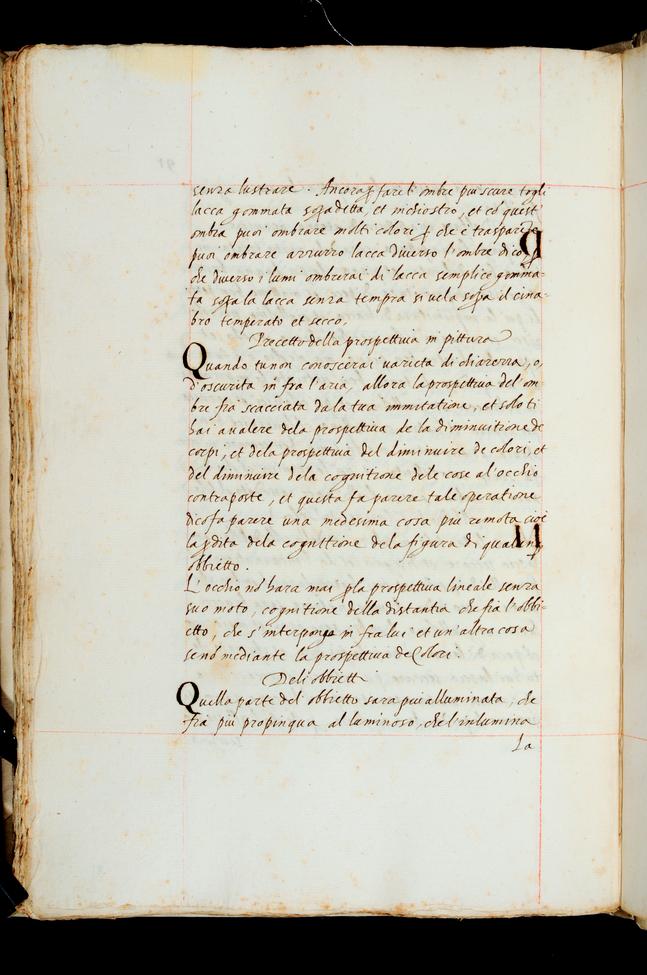 senza lustrare. Ancora ꝑ fare l'ombre piu scure togli
lacca gommata sopradetta, et inchiostro, et cō quest
ombra puoi ombrare molti colori ꝑ che è trasparēte
puoi ombrare azzurro lacca diverso l'ombre dico ꝑ
che diverso i lumi ombrerai di lacca semplice gomma-
ta sopra la lacca senza tempra si vela sopra il cina-
bro temperato et secco.
Precetto della prospettiva in pittura
Quando tu non conoscerai varieta di chiarezza, o,
d'oscurita in fra l'aria, allora la prospettiva del'om
bre fia scacciata da la tua immitatione, et solo ti
hai a valere dela prospettiva de la diminuitione de
corpi, et dela prospettiva del diminuire de colori, et
del diminuire dela cognitione dele cose al'occhio
contraposte, et questa fa parere tale operatione
dico fa parere una medesima cosa piu remota cioè
la ꝑdita dela cognittione dela figura di qualunq
obbietto.
L'occhio nō hara mai ꝑ la prospettiva lineale senza
suo moto, cognitione della distantia che fia l'obbi-
etto, che s'interpone in fra lui et un'altra cosa
se nō mediante la prospettiva de Colori.
Deli obbietti
Quella parte del'obbietto sara piu alluminata, che
fia piu propinqua al luminoso, che l'inlumina
La